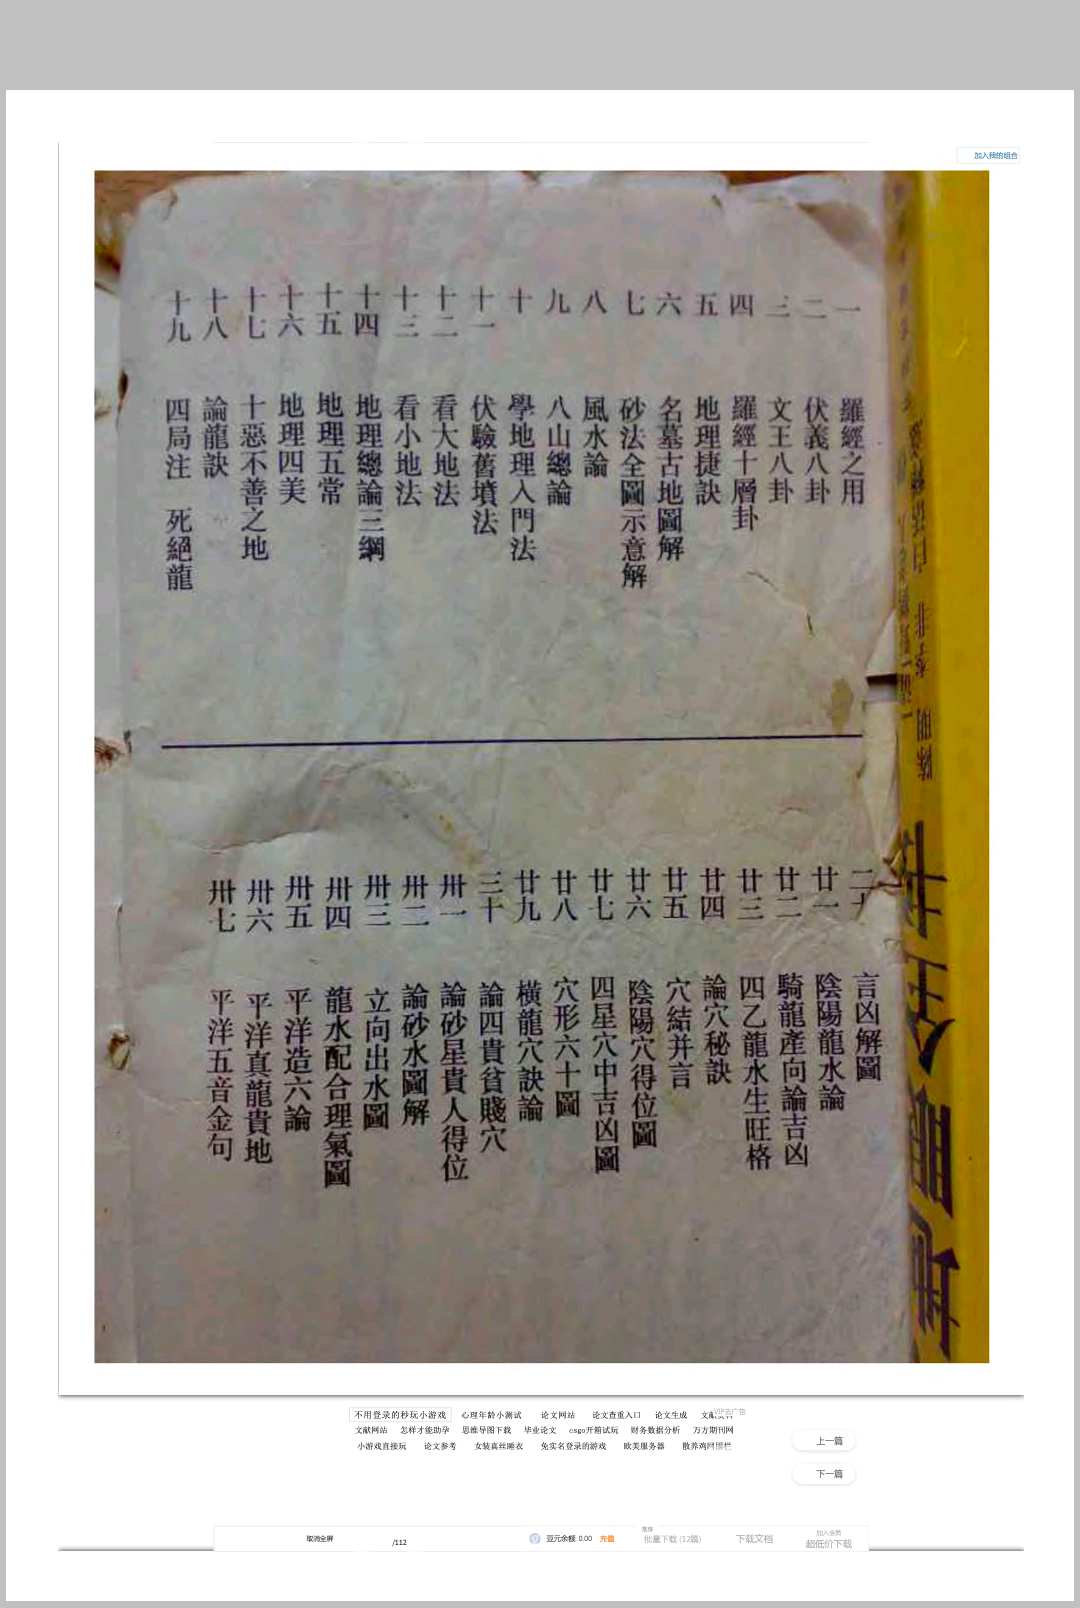 加入我的组合
一 羅經之用
二 伏義八卦
三 文王八卦
四 羅經十層卦
五 地理捷訣
六 名墓古地圖解
七 砂法全圖示意解
八 風水論
九 八山總論
十 學地理入門法
十一 伏驗舊墳法
十二 看大地法
十三 看小地法
十四 地理總論三綱
十五 地理五常
十六 地理四美
十七 十惡不善之地
十八 論龍訣
十九 四局注 死絕龍
二十 言凶解圖
廿一 陰陽龍水論
廿二 騎龍產向論吉凶
廿三 四乙龍水生旺格
廿四 論穴秘訣
廿五 穴結并言
廿六 陰陽穴得位圖
廿七 四星穴中吉凶圖
廿八 穴形六十圖
廿九 橫龍穴訣論
三十 論四貴貧賤穴
卅一 論砂星貴人得位
卅二 論砂水圖解
卅三 立向出水圖
卅四 龍水配合理氣圖
卅五 平洋造六論
卅六 平洋真龍貴地
卅七 平洋五音金句
不用登录的秒玩小游戏 心理年龄小测试 论文网站 论文查重入口 论文生成
文献网站 怎样才能助孕 思维导图下载 毕业论文 csgo开箱试玩 财务数据分析 万方期刊网
小游戏直接玩 论文参考 女装真丝睡衣 免实名登录的游戏 欧美服务器 散养鸡网围栏
上一篇
下一篇
取消全屏 /112 豆元余额 0.00 充值 批量下载 (12篇) 下载文档 加入会员
超低价下载